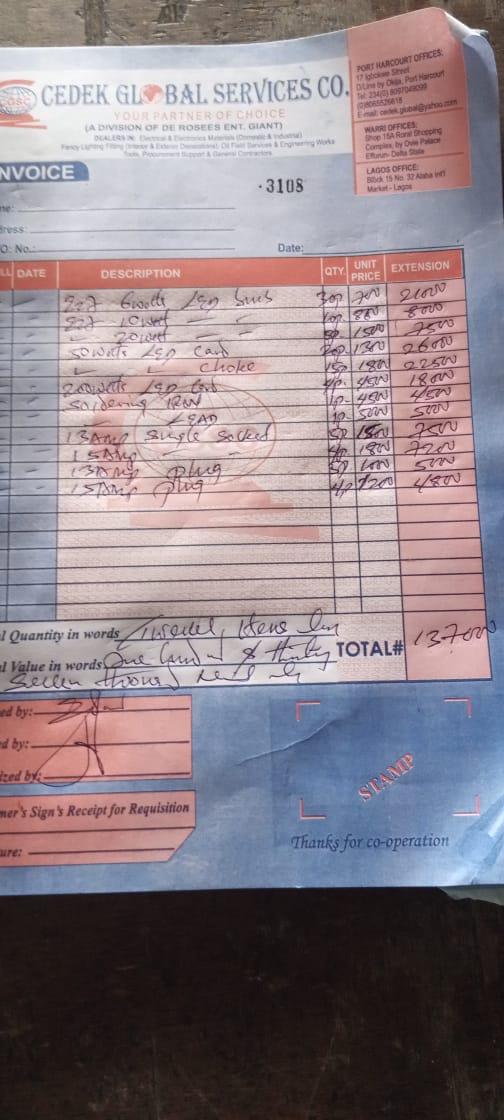 CGSC
CEDEK GLOBAL SERVICES CO.
YOUR PARTNER OF CHOICE
(A DIVISION OF DE ROSEES ENT. GIANT)
DEALERS IN: Electrical & Electronics Materials (Domestic & Industrial)
Fancy Lighting Fitting (Interior & Exterior Decorations), Oil Field Services & Engineering Works
Tools, Procurement Support & General Contractors
PORT HARCOURT OFFICES:
17 Igbokwe Street
D/Line by Okija, Port Harcourt
Tel: 234(0) 8097049099
(0)8065526618
E-mail: cedek.global@yahoo.com
WARRI OFFICES:
Shop 15A Roral Shopping
Complex, by Ovie Palace
Effurun- Delta State
LAGOS OFFICE:
Block 15 No. 32 Alaba Int'l
Market - Lagos
NVOICE
3108
me:
dress:
O: No.:
Date:
LL DATE DESCRIPTION QTY. UNIT PRICE EXTENSION
6watts LED bulb 30p 700 21000
10watt 10p 800 8000
20watt 5p 1500 7500
50watts LED Card 20p 1300 26000
choke 15p 1800 22500
200watts LED Card 4p 4500 18000
Soldering IRON 1p 4500 4500
LEAD 1p 5000 5000
13Amp Single Socked 5p 1500 7500
15Amp 4p 1800 7200
13Amp plug 5p 1000 5000
15Amp plug 4p 1200 4800
l Quantity in words
l Value in words One
TOTAL# 137000
ed by:
d by:
ized by:
mer's Sign's Receipt for Requisition
ure:
STAMP
Thanks for co-operation